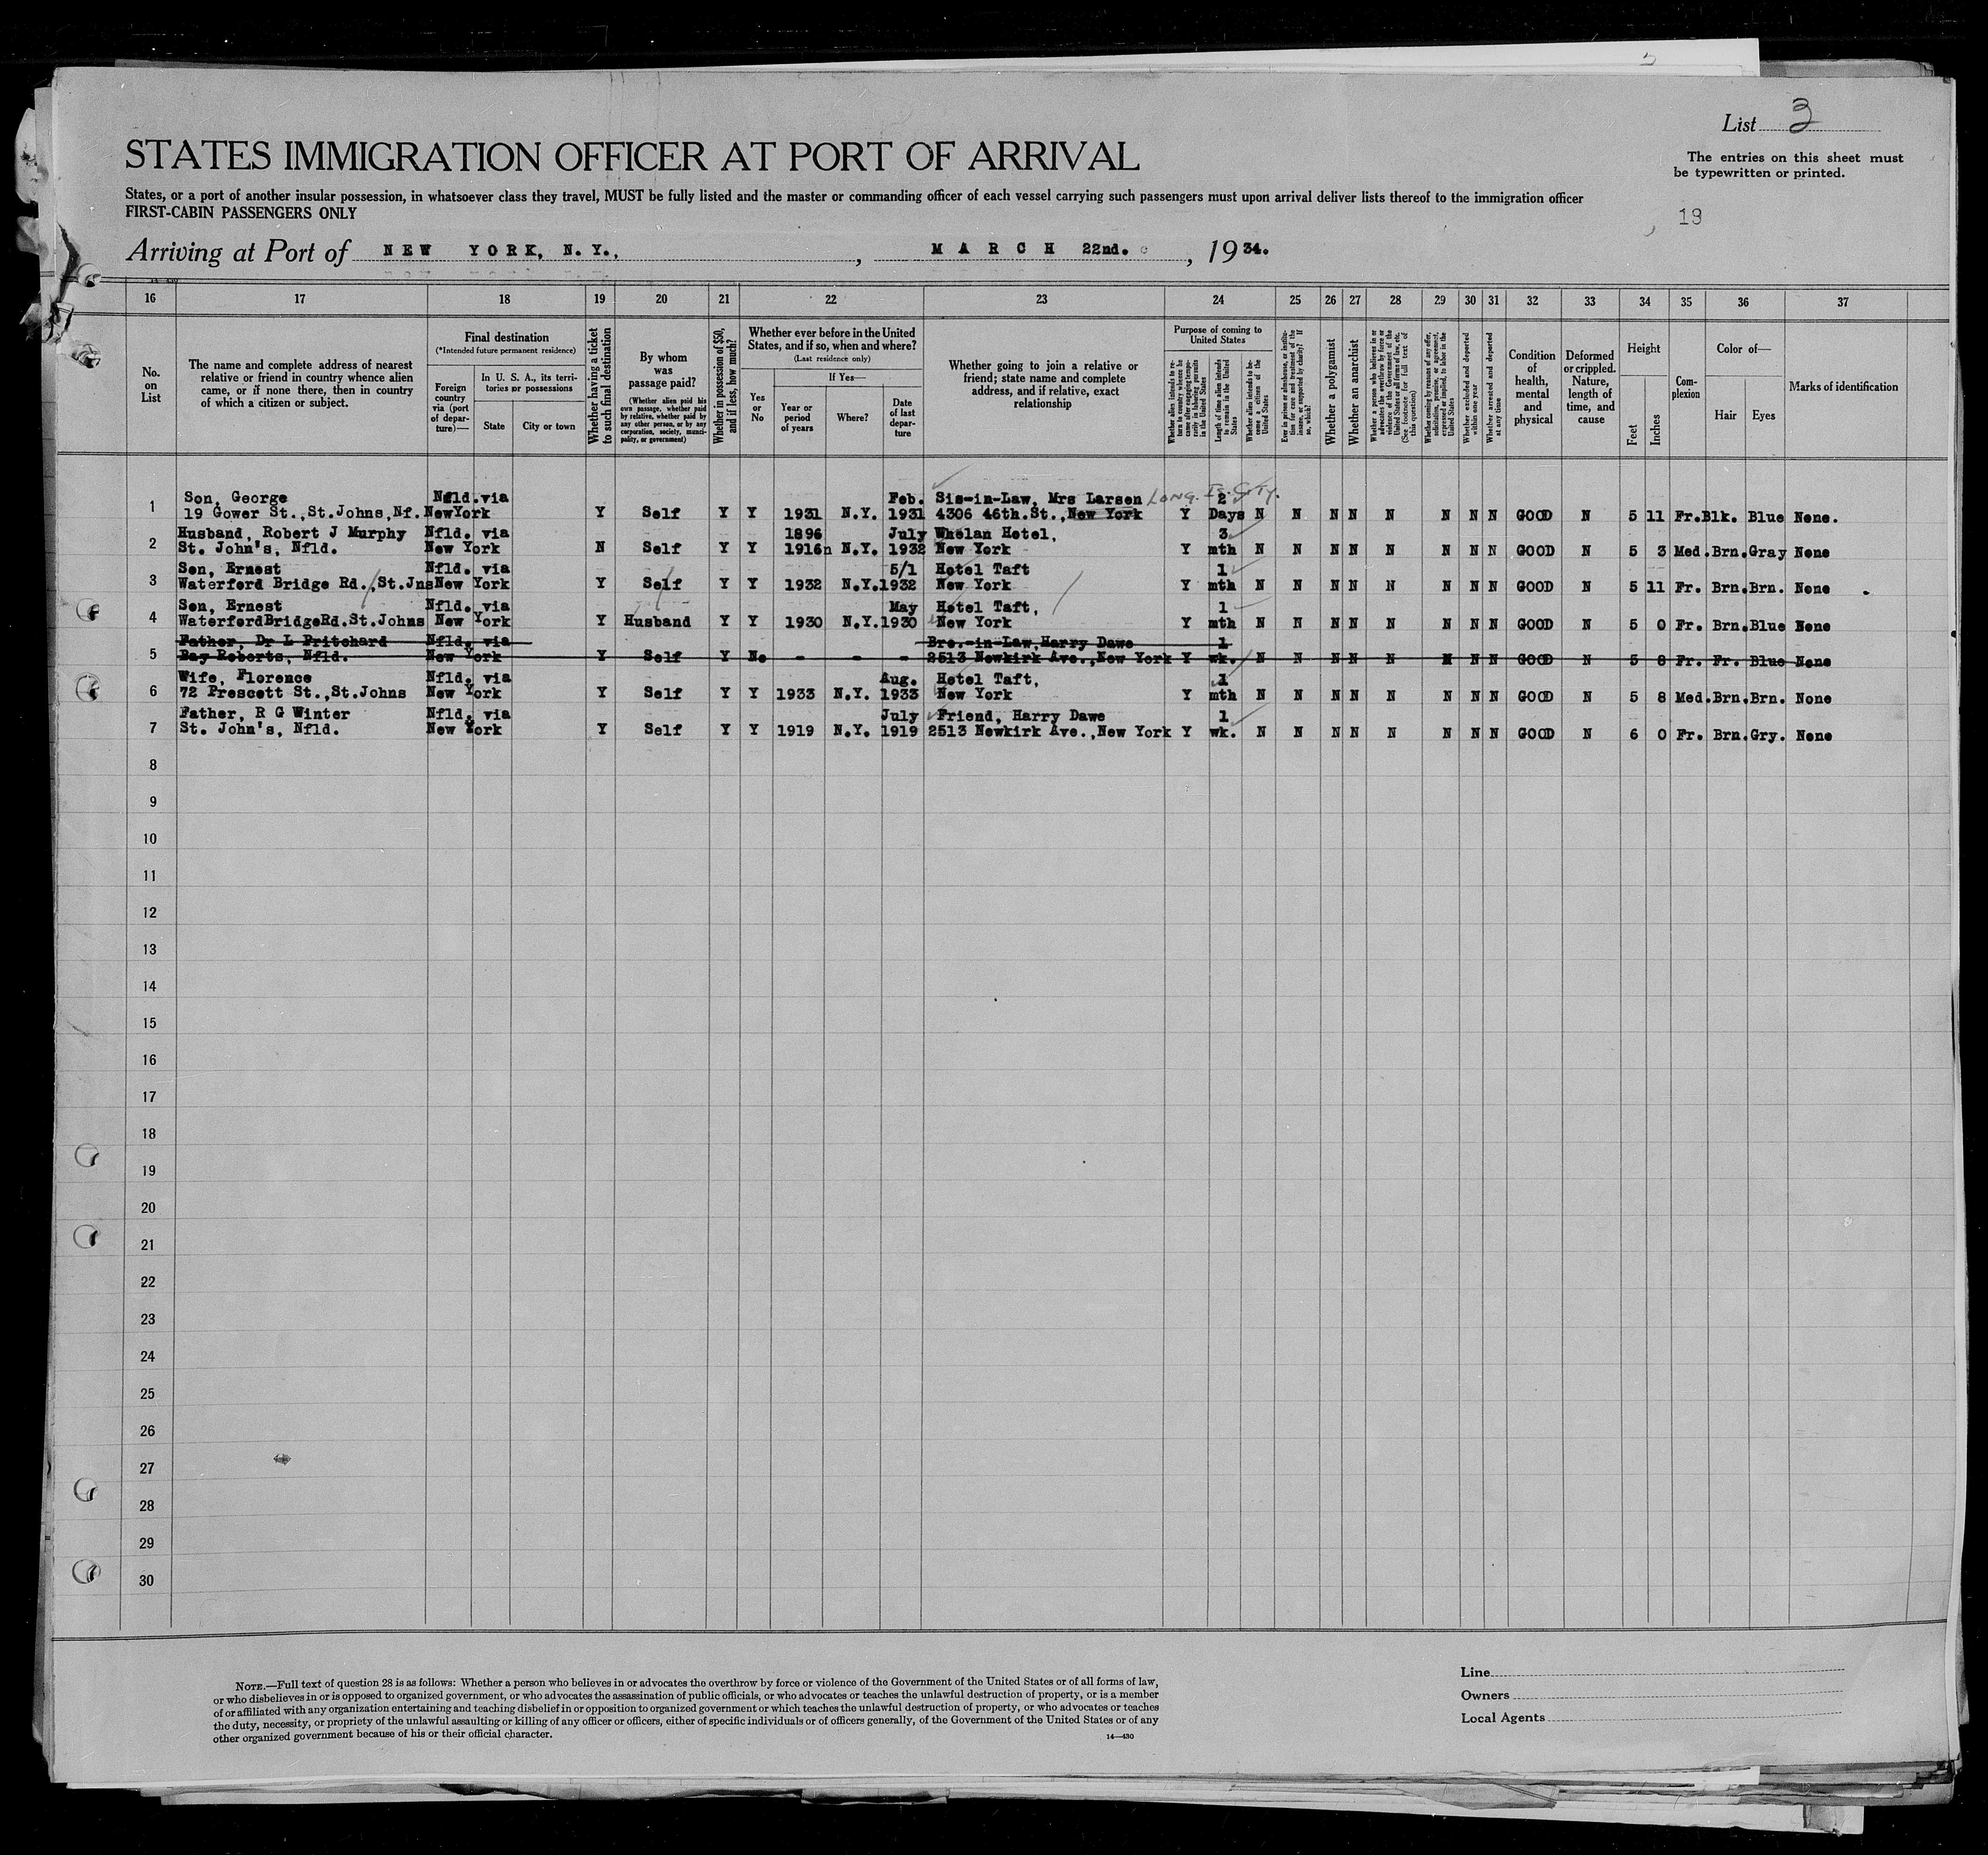 List 3
The entries on this sheet must
be typewritten or printed.
STATES IMMIGRATION OFFICER AT PORT OF ARRIVAL
States, or a port of another insular possession, in whatsoever class they travel, MUST be fully listed and the master or commanding officer of each vessel carrying such passengers must upon arrival deliver lists thereof to the immigration officer
FIRST-CABIN PASSENGERS ONLY
Arriving at Port of NEW YORK, N.Y., , MARCH 22nd. , 1934.
16 17 18 19 20 21 22 23 24 25 26 27 28 29 30 31 32 33 34 35 36 37
No. on List
The name and complete address of nearest relative or friend in country whence alien came, or if none there, then in country of which a citizen or subject.
Final destination
(*Intended future permanent residence)
Foreign country via (port of departure)—
In U. S. A., its territories or possessions
State
City or town
Whether having a ticket to such final destination
By whom was passage paid?
(Whether alien paid his own passage, whether paid by relative, whether paid by any other person, or by any corporation, society, municipality, or government)
Whether in possession of $50, and if less, how much?
Whether ever before in the United States, and if so, when and where?
(Last residence only)
Yes or No
If Yes—
Year or period of years
Where?
Date of last departure
Whether going to join a relative or friend; state name and complete address, and if relative, exact relationship
Purpose of coming to United States
Whether alien intends to return to country whence he came after engaging temporarily in laboring pursuits in the United States
Length of time alien intends to remain in the United States
Whether alien intends to become a citizen of the United States
Ever in prison or almshouse, or institution for care and treatment of the insane, or supported by charity? If so, which?
Whether a polygamist
Whether an anarchist
Whether a person who believes in or advocates the overthrow by force or violence of the Government of the United States or all forms of law, etc. (See footnote for full text of this question)
Whether coming by reason of any offer, solicitation, promise, or agreement, expressed or implied, to labor in the United States
Whether excluded and deported within one year
Whether arrested and deported at any time
Condition of health, mental and physical
Deformed or crippled. Nature, length of time, and cause
Height
Feet
Inches
Complexion
Color of—
Hair
Eyes
Marks of identification
Son, George Nfld.via Feb. Sis-in-Law, Mrs Larsen Long Is. City. 2
1 19 Gower St.,St.Johns,Nf. NewYork Y Self Y Y 1931 N.Y. 1931 4306 46th.St.,New York Y Days N N N N N N N N GOOD N 5 11 Fr. Blk. Blue None.
Husband, Robert J Murphy Nfld. via 1896 July Whelan Hotel, 3
2 St. John's, Nfld. New York N Self Y Y 1916n N.Y. 1932 New York Y mth N N N N N N N N GOOD N 5 3 Med. Brn. Gray None
Son, Ernest Nfld. via 5/1 Hotel Taft 1
3 Waterford Bridge Rd.,St.Jns New York Y Self Y Y 1932 N.Y. 1932 New York Y mth N N N N N N N N GOOD N 5 11 Fr. Brn. Brn. None
Son, Ernest Nfld. via May Hotel Taft, 1
4 WaterfordBridgeRd.St.Johns New York Y Husband Y Y 1930 N.Y. 1930 New York Y mth N N N N N N N N GOOD N 5 0 Fr. Brn. Blue None
Father, Dr L Pritchard Nfld. via Bro.-in-Law,Harry Dawe 1
5 Bay Roberts, Nfld. New York Y Self Y No - - - 2513 Newkirk Ave.,New York Y wk. N N N N N N N N GOOD N 5 8 Fr. Fr. Blue None
Wife, Florence Nfld. via Aug. Hotel Taft, 1
6 72 Prescott St.,St.Johns New York Y Self Y Y 1933 N.Y. 1933 New York Y mth N N N N N N N N GOOD N 5 8 Med. Brn. Brn. None
Father, R G Winter Nfld. via July Friend, Harry Dawe 1
7 St. John's, Nfld. New York Y Self Y Y 1919 N.Y. 1919 2513 Newkirk Ave.,New York Y wk. N N N N N N N N GOOD N 6 0 Fr. Brn. Gry. None
8
9
10
11
12
13
14
15
16
17
18
19
20
21
22
23
24
25
26
27
28
29
30
NOTE.—Full text of question 28 is as follows: Whether a person who believes in or advocates the overthrow by force or violence of the Government of the United States or of all forms of law,
or who disbelieves in or is opposed to organized government, or who advocates the assassination of public officials, or who advocates or teaches the unlawful destruction of property, or is a member
of or affiliated with any organization entertaining and teaching disbelief in or opposition to organized government or which teaches the unlawful destruction of property, or who advocates or teaches
the duty, necessity, or propriety of the unlawful assaulting or killing of any officer or officers, either of specific individuals or of officers generally, of the Government of the United States or of any
other organized government because of his or their official character.
14—430
Line
Owners
Local Agents